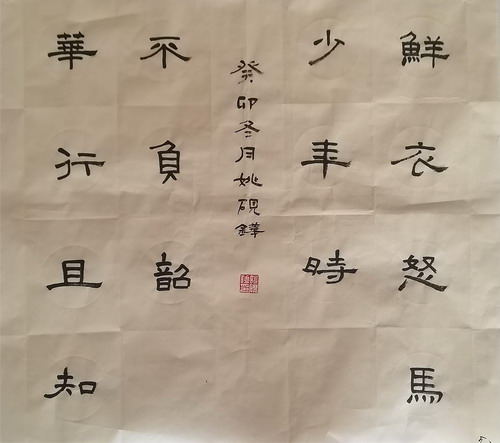 鮮衣怒馬
少年時
不負韶
華行且知
癸卯冬月姚硯鏵